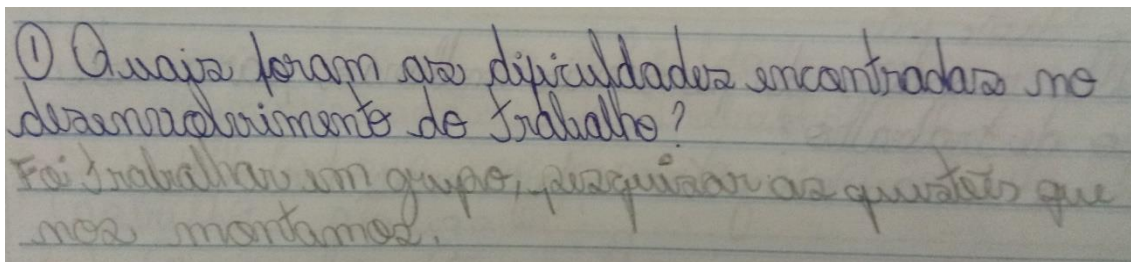 ① Quais foram as dificuldades encontradas no
desenvolvimento do trabalho?
Foi trabalhar em grupo, pesquisar as questões que
nos montamos.